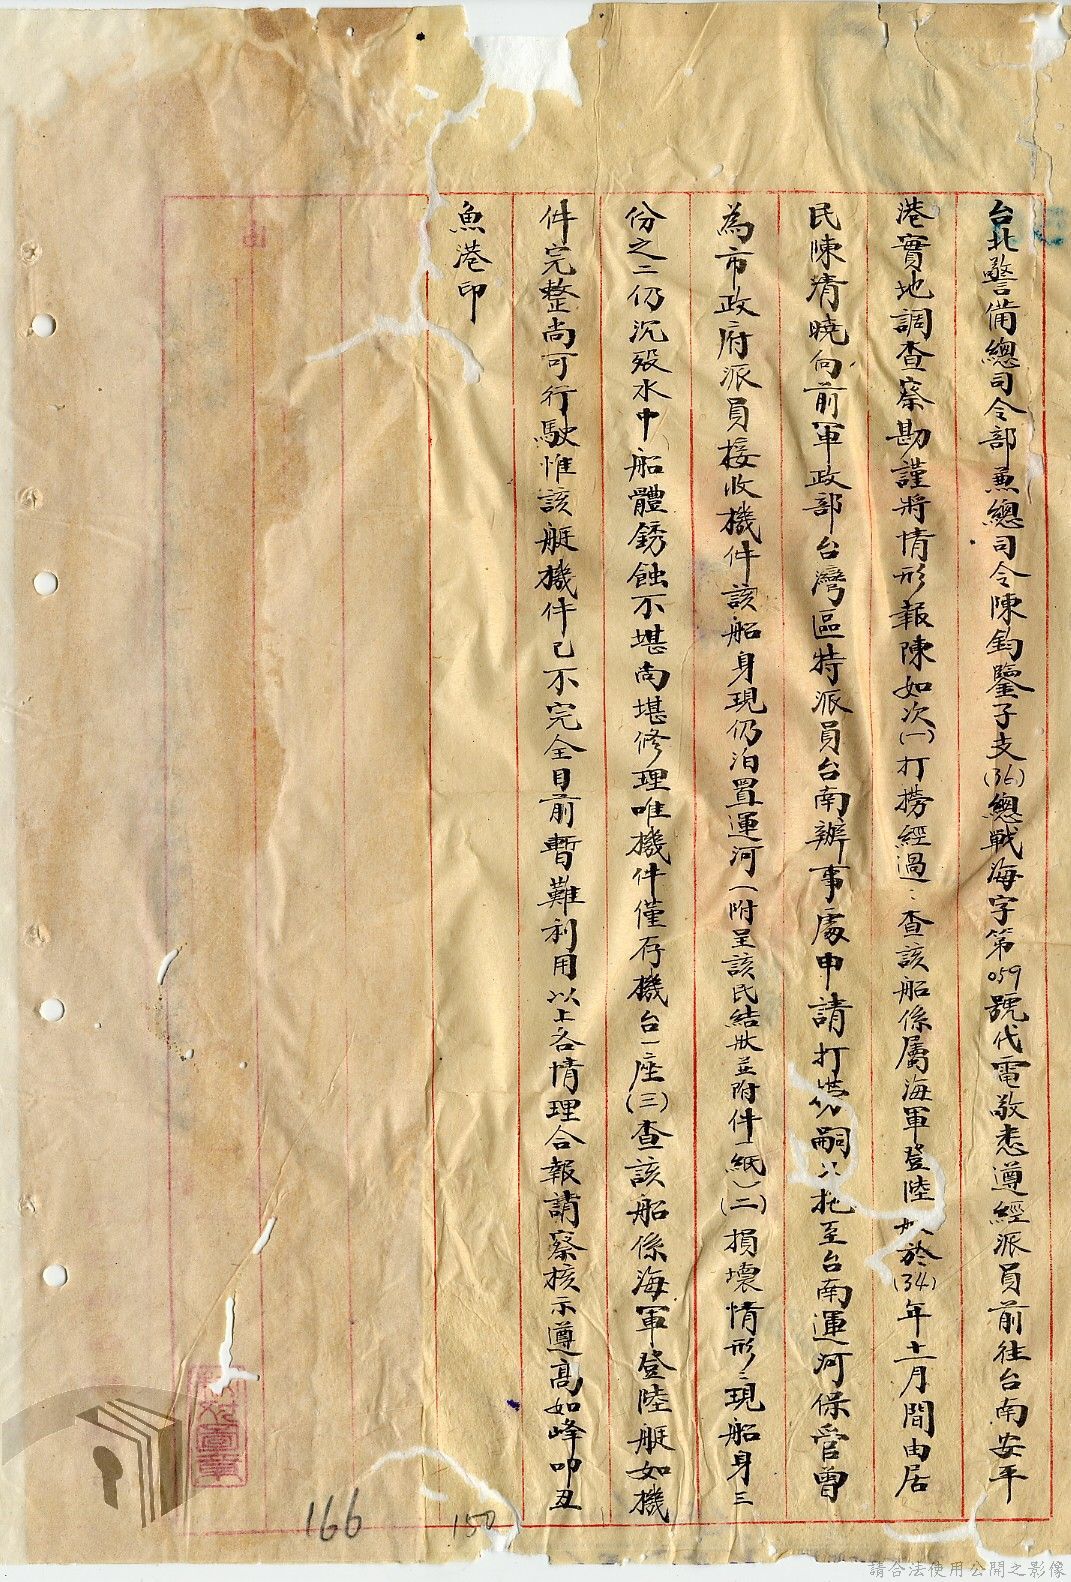 台北警備總司令部兼總司令陳鈞鑒子支(36)總戰海字第059號代電敬悉遵經派員前往台南安平
港實地調查察勘謹將情形報陳如次(一)打撈經過：查該船係屬海軍登陸 於(34)年十二月間由居
民陳清曉向前軍政部台灣區特派員台南辦事處申請打撈嗣以扥至台南運河保管曾
為市政府派員接收機件該船身現仍泊置運河(附呈該民結狀並附件一紙)(二)損壞情形：現船身三
份之二仍沉歿水中船體銹蝕不堪尚堪修理唯機件僅存機台一座(三)查該船係海軍登陸艇如機
件完整尚可行駛惟該艇機件已不完全目前暫難利用以上各情理合報請察核示遵高如峰叩丑
魚港印
150
166
請合法使用公開之影像